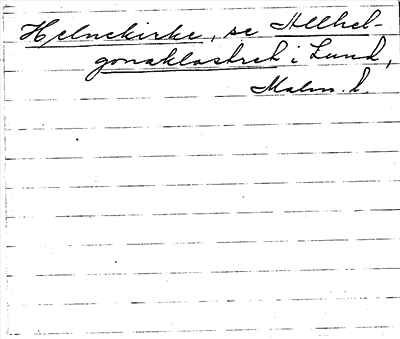 Helnekirke, se Allhel-
gonaklostret i Lund,
Malm. l.